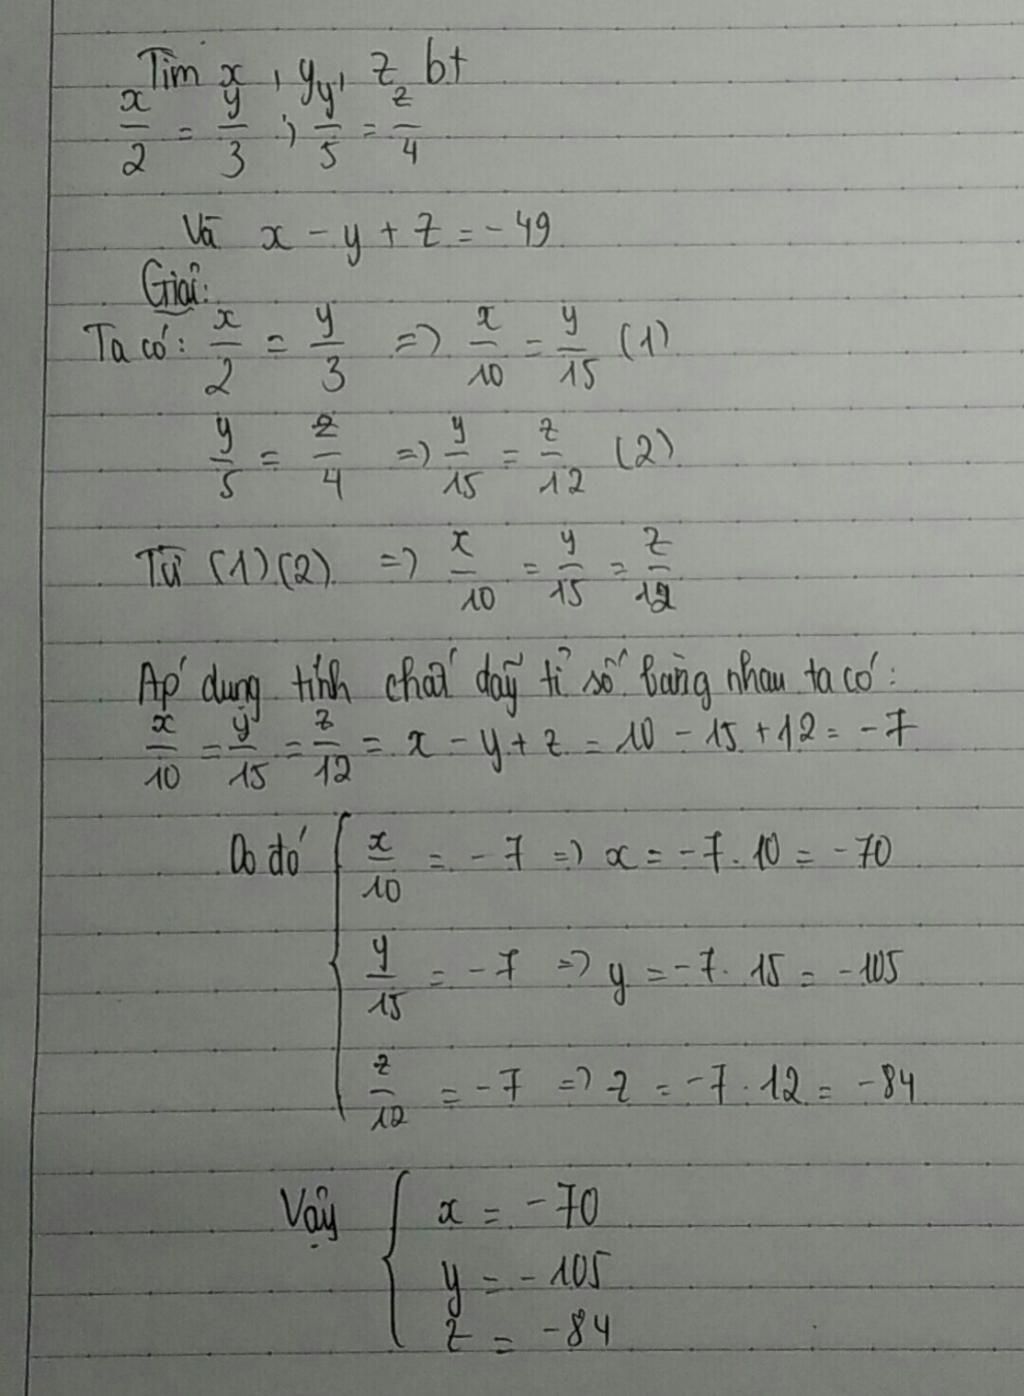 Tìm x, y, z bt
x/2 = y/3 ; y/5 = z/4
Và x - y + z = - 49
Giải:
Ta có: x/2 = y/3 => x/10 = y/15 (1)
y/5 = z/4 => y/15 = z/12 (2)
Từ (1) (2) => x/10 = y/15 = z/12
Áp dụng tính chất dãy tỉ số bằng nhau ta có:
x/10 = y/15 = z/12 = x - y + z = 10 - 15 + 12 = - 7
Do đó { x/10 = - 7 => x = - 7 . 10 = - 70
y/15 = - 7 => y = - 7 . 15 = - 105
z/12 = - 7 => z = - 7 . 12 = - 84
Vậy { x = - 70
y = - 105
z = - 84